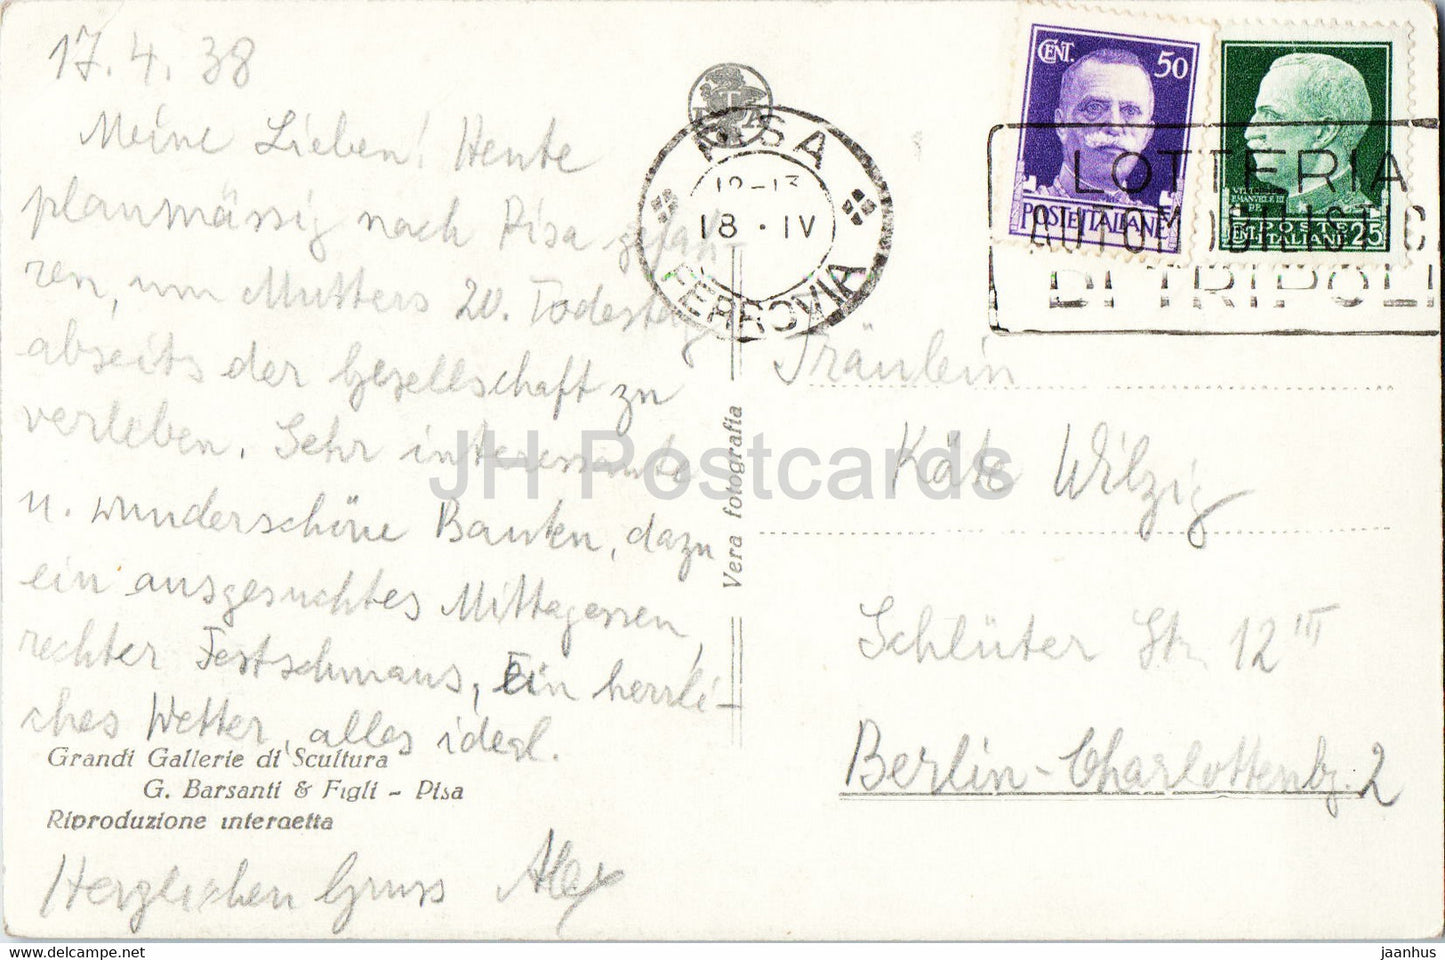 17. 4. 38
Meine Lieben! Heute
planmässig nach Pisa gefah
ren, um Mutters 20. Todestag
abseits der Gesellschaft zu
verleben. Sehr interessante
u. wunderschöne Bauten, dazu
ein ausgesuchtes Mittagessen,
rechter Festschmaus, Ein herrli-
ches Wetter, alles ideal.
Grandi Gallerie di Scultura
G. Barsanti & Figli - Pisa
Riproduzione interdetta
Herzlichen Gruss Alex
Vera fotografia
PISA
12-13
18 . IV
FERROVIA
CENT. 50
POSTE ITALIANE
VITT. EMANUELE III
POSTE ITALIANE
CENT. 25
LOTTERIA
AUTOMOBILISTIC
DI TRIPOLI
Fräulein
Käte Wilzig
Schlüter Str. 12 III
Berlin-Charlottenbg. 2
JH Postcards
https://jhpostcards.com
jaanhus